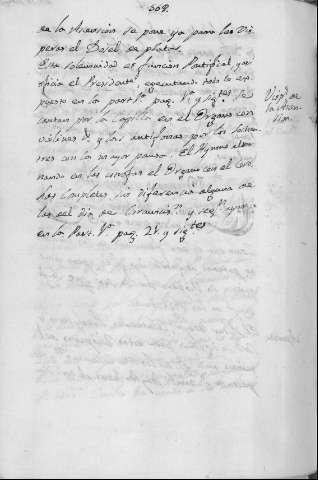 362.
de la Ascension se pone ya para las Vis
peras el Dosel de plata.
Esta solemnidad es funcion Pontifical, que
oficia el Presidente, executando todo lo ex
puesto en la part. 1ª pag. 1ª y sigtes. Se
cantan por la capilla en el Organo con
violines &. y las antifonas por los sochan
tres con la mayor pausa. El Hymno alter
nando en las el Organo con el Coro
Las Completas sin diferencia alguna de
las del dia de Circuncisn. y
en la Part. 1ª pag. 21. y sigtes
Visps. de
la Ascen
sion.